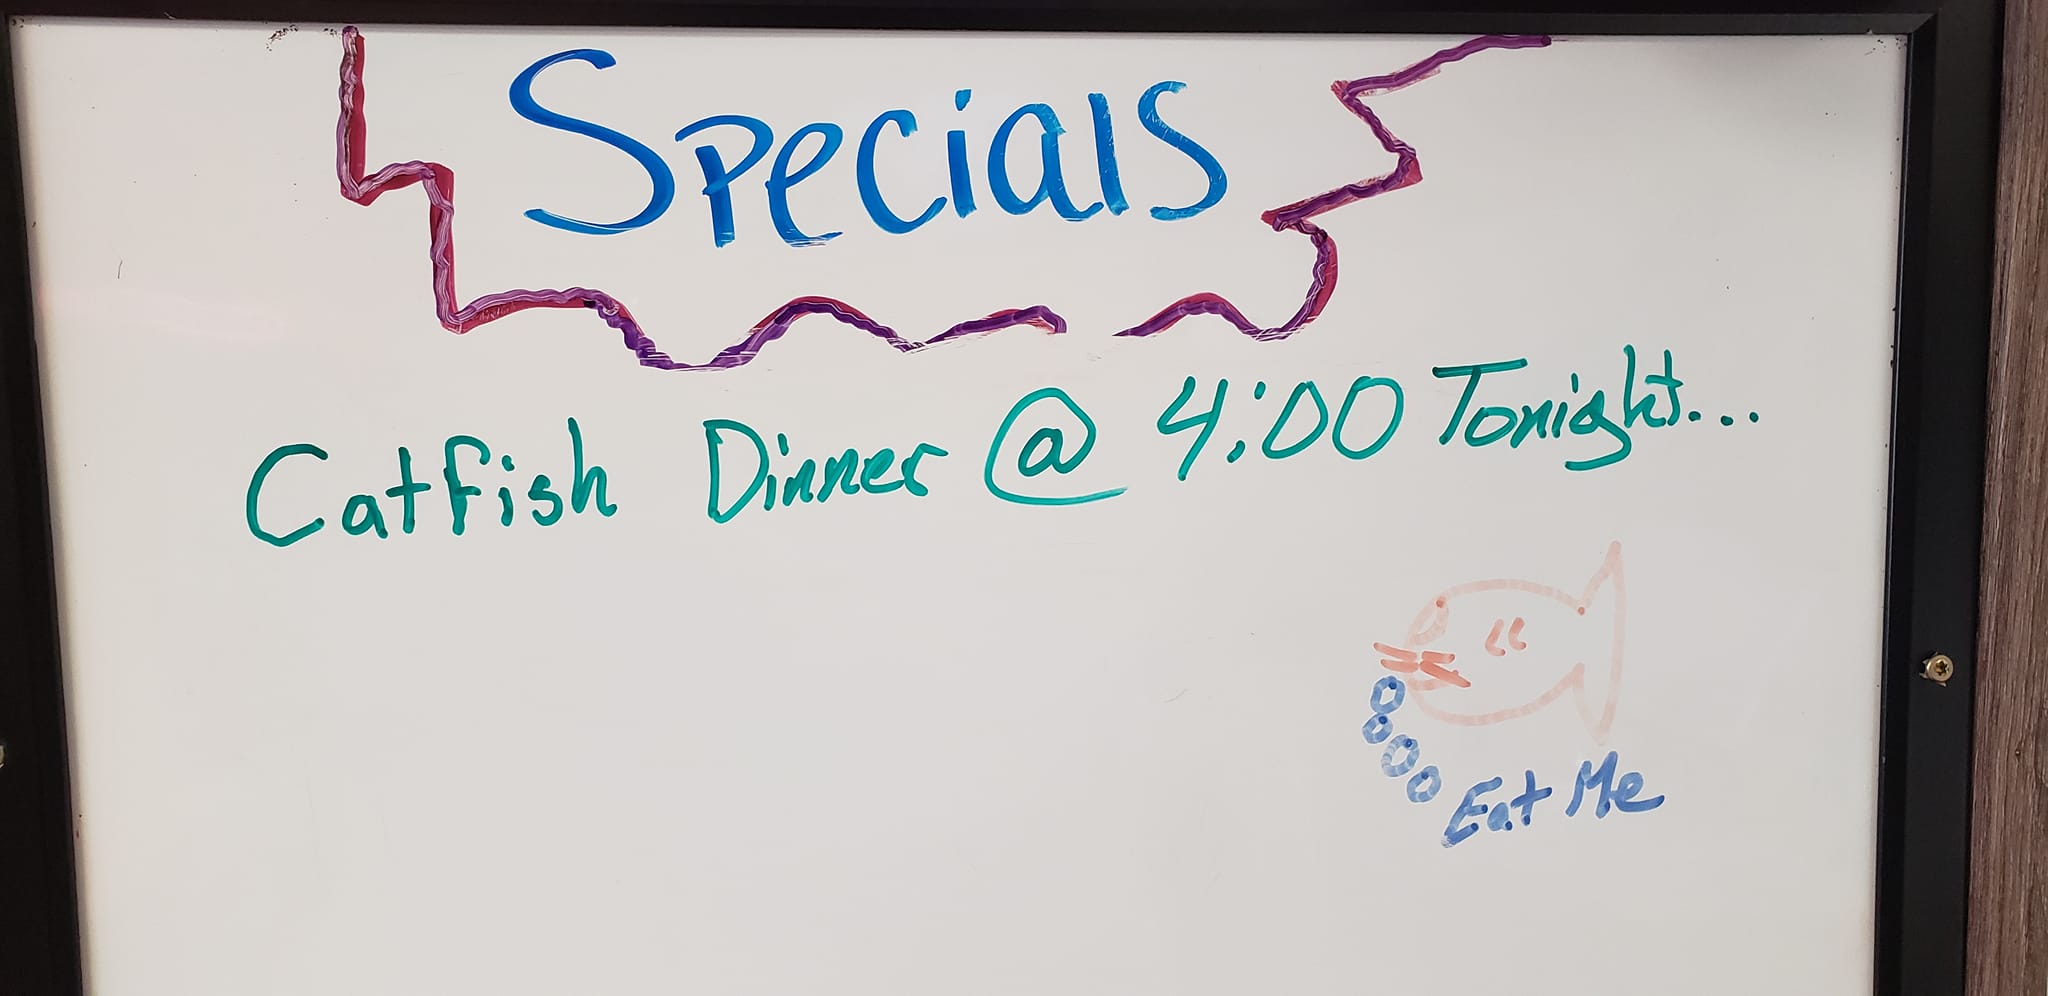 Specials
Catfish Dinner @ 4:00 Tonight...
Eat Me